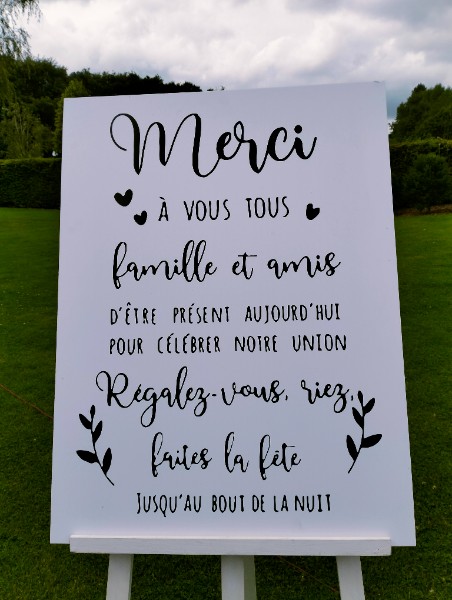 Merci
À VOUS TOUS
famille et amis
D'ÊTRE PRÉSENT AUJOURD'HUI
POUR CÉLÉBRER NOTRE UNION
Régalez-vous, riez,
faites la fête
JUSQU'AU BOUT DE LA NUIT